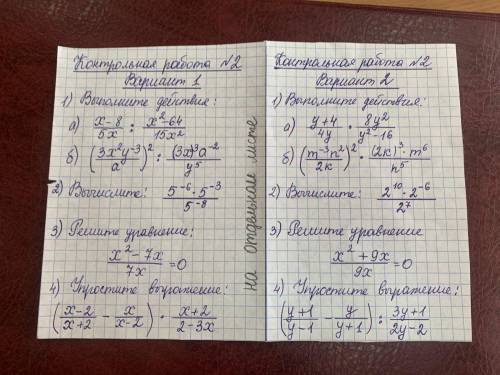 Контрольная работа №2
Вариант 1
1) Выполните действия:
а) (x-8)/(5x) : (x²-64)/(15x²)
б) ((3x²y⁻³)/a)² : ((3x)³a⁻²)/y⁵
2) Вычислите: (5⁻⁶·5⁻³)/5⁻⁸
3) Решите уравнение:
(x²-7x)/(7x)=0
4) Упростите выражение:
((x-2)/(x+2) - x/(x-2)) · (x+2)/(2-3x)
на отдельном листе
Контрольная работа №2
Вариант 2
1) Выполните действия:
а) (y+4)/(4y) · (8y²)/(y²-16)
б) ((m⁻³n²)/(2k))² · ((2k)³·m⁶)/n⁵
2) Вычислите: (2¹⁰·2⁻⁶)/2⁷
3) Решите уравнение
(x²+9x)/(9x)=0
4) Упростите выражение:
((y+1)/(y-1) - y/(y+1)) : (3y+1)/(2y-2)